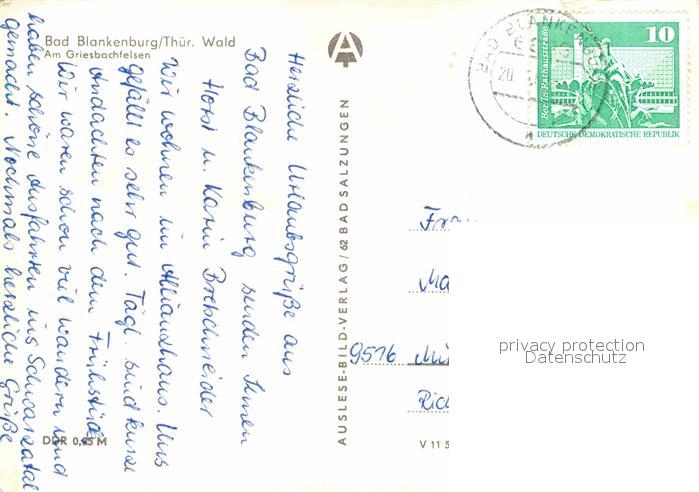 Bad Blankenburg/Thür. Wald
Am Griesbachfelsen
Herzliche Urlaubsgrüße aus
Bad Blankenburg senden Ihnen
Horst u. Karin Bretschneider
Wir wohnen im Allianzhaus. Uns
gefällt es sehr gut. Tägl. sind kurze
Andachten nach dem Frühstück
Wir waren schon viel wandern und
haben schöne Ausfahrten ins Schwarzatal
gemacht. Nochmals herzliche Grüße
DDR 0,95 M
AUSLESE-BILD-VERLAG / 62 BAD SALZUNGEN
V 11 5
BAD BLANKENB
20
10
Berlin Rathausstraße
DEUTSCHE DEMOKRATISCHE REPUBLIK
Fra
Ma
9516 Mü
privacy protection
Datenschutz